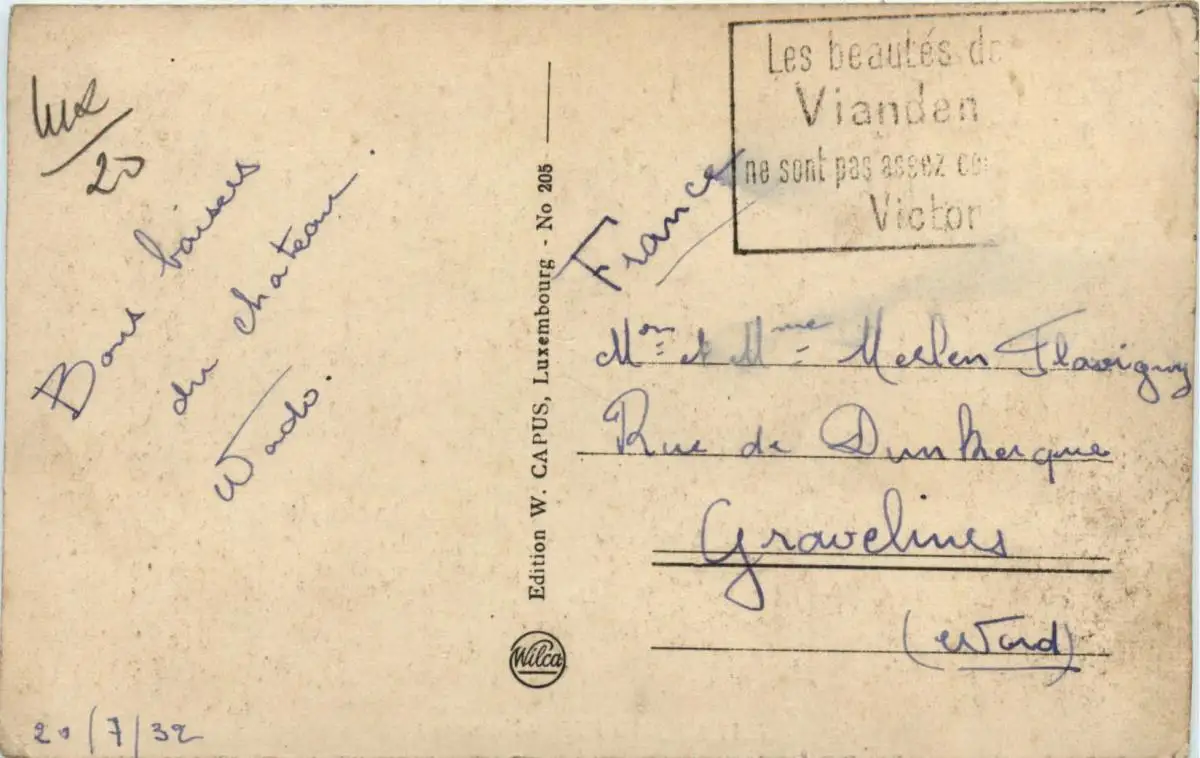 Lux
20
Bons baisers
du chateau.
Wado.
20/7/32
Edition W. CAPUS, Luxembourg - No 205
Wilca
Les beautés de
Vianden
ne sont pas assez co
Victor
France
Mon et Mme Merlen Flavigny
Rue de Dunkerque
Gravelines
(Nord)